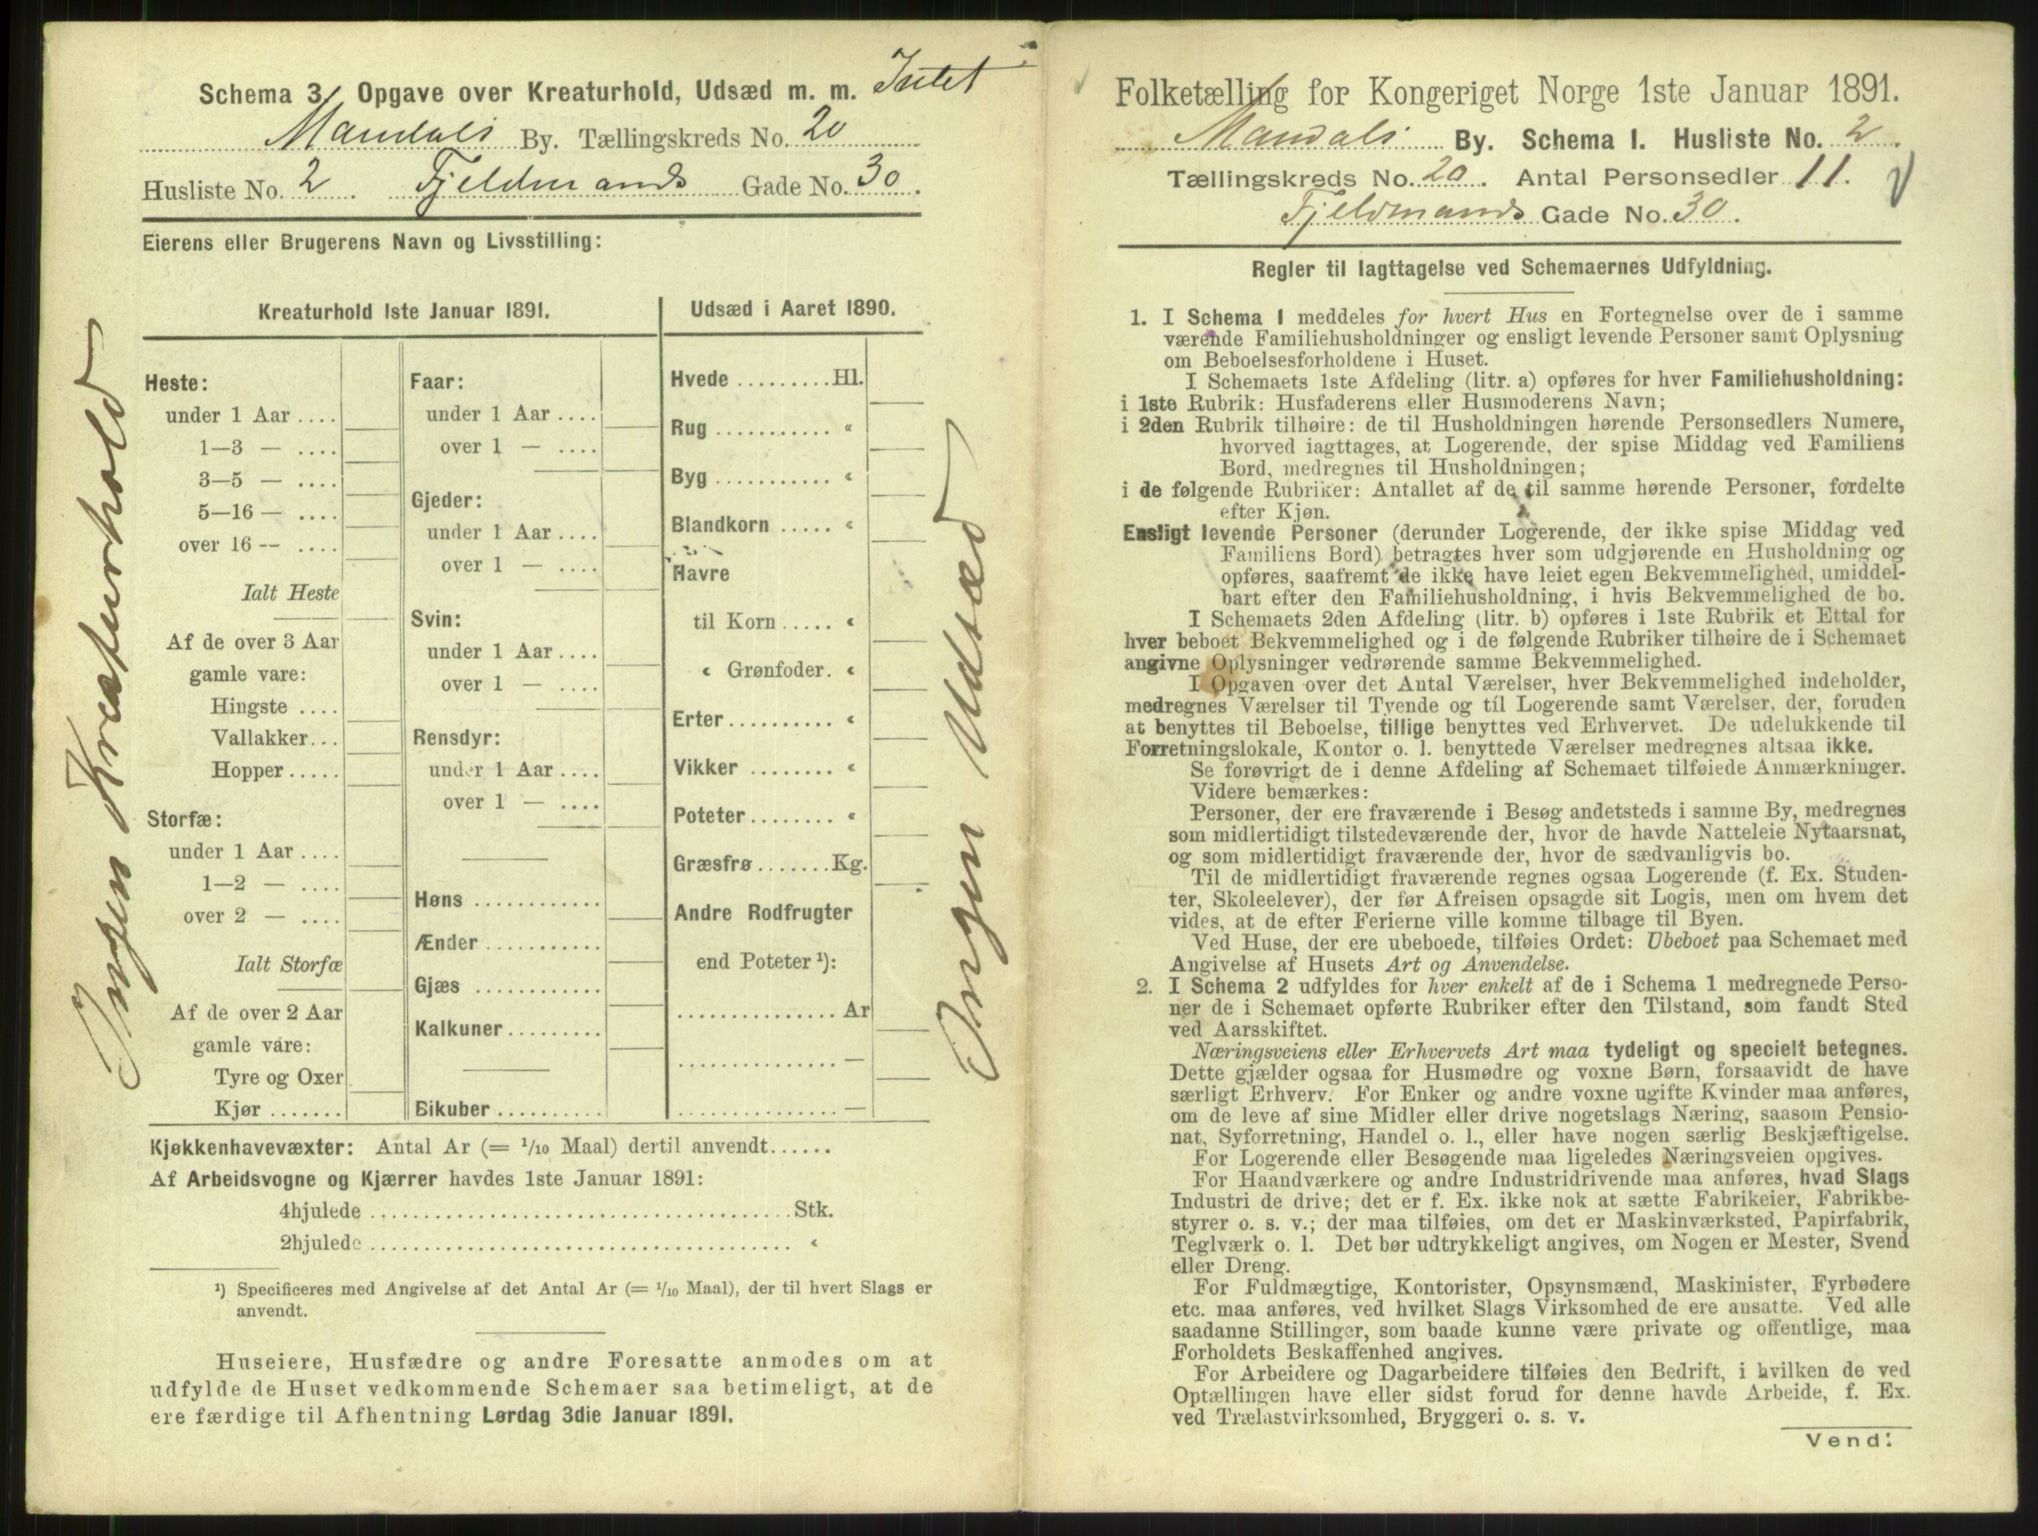 Schema 3. Opgave over Kreaturhold, Udsæd m. m. Intet
Mandals By. Tællingskreds No. 20
Husliste No. 2. Fjeldmands Gade No. 30.
Eierens eller Brugerens Navn og Livsstilling:
Kreaturhold 1ste Januar 1891.
Heste:
under 1 Aar ....
1—3 — ....
3—5 — ....
5—16 — ....
over 16 -- ....
Ialt Heste
Af de over 3 Aar
gamle vare:
Hingste ....
Vallakker...
Hopper.....
Storfæ:
under 1 Aar ....
1—2 — ....
over 2 — ....
Ialt Storfæ
Af de over 2 Aar
gamle vare:
Tyre og Oxer
Kjør .......
Faar:
under 1 Aar ....
over 1 — ....
Gjeder:
under 1 Aar ....
over 1 — ....
Svin:
under 1 Aar ....
over 1 — ....
Rensdyr:
under 1 Aar ....
over 1 — ....
Høns ............
Ænder ...........
Gjæs ............
Kalkuner.........
Bikuber ..........
Udsæd i Aaret 1890.
Hvede .........Hl.
Rug ........... «
Byg ........... «
Blandkorn ..... «
Havre
til Korn ..... «
« Grønfoder. «
Erter.......... «
Vikker ........ «
Poteter........ «
Græsfrø .......Kg.
Andre Rodfrugter
end Poteter ¹):
............... Ar
............... —
............... —
Ingen Kreaturhold
Ingen Udsæd
Kjøkkenhavevæxter: Antal Ar (= 1/10 Maal) dertil anvendt......
Af Arbeidsvogne og Kjærrer havdes 1ste Januar 1891:
4hjulede ........................................Stk.
2hjulede ........................................ «
¹) Specificeres med Angivelse af det Antal Ar (= 1/10 Maal), der til hvert Slags er
anvendt.
Huseiere, Husfædre og andre Foresatte anmodes om at
udfylde de Huset vedkommende Schemaer saa betimeligt, at de
ere færdige til Afhentning Lørdag 3die Januar 1891.
Folketælling for Kongeriget Norge 1ste Januar 1891.
Mandals By. Schema I. Husliste No. 2.
Tællingskreds No. 20. Antal Personsedler 11.
Fjeldmands Gade No. 30.
Regler til Iagttagelse ved Schemaernes Udfyldning.
1. I Schema 1 meddeles for hvert Hus en Fortegnelse over de i samme
værende Familiehusholdninger og ensligt levende Personer samt Oplysning
om Beboelsesforholdene i Huset.
I Schemaets 1ste Afdeling (litr. a) opføres for hver Familiehusholdning:
i 1ste Rubrik: Husfaderens eller Husmoderens Navn;
i 2den Rubrik tilhøire: de til Husholdningen hørende Personsedlers Numere,
hvorved iagttages, at Logerende, der spise Middag ved Familiens
Bord, medregnes til Husholdningen;
i de følgende Rubriker: Antallet af de til samme hørende Personer, fordelte
efter Kjøn.
Ensligt levende Personer (derunder Logerende, der ikke spise Middag ved
Familiens Bord) betragtes hver som udgjørende en Husholdning og
opføres, saafremt de ikke have leiet egen Bekvemmelighed, umiddel-
bart efter den Familiehusholdning, i hvis Bekvemmelighed de bo.
I Schemaets 2den Afdeling (litr. b) opføres i 1ste Rubrik et Ettal for
hver beboet Bekvemmelighed og i de følgende Rubriker tilhøire de i Schemaet
angivne Oplysninger vedrørende samme Bekvemmelighed.
I Opgaven over det Antal Værelser, hver Bekvemmelighed indeholder,
medregnes Værelser til Tyende og til Logerende samt Værelser, der, foruden
at benyttes til Beboelse, tillige benyttes ved Erhvervet. De udelukkende til
Forretningslokale, Kontor o. l. benyttede Værelser medregnes altsaa ikke.
Se forøvrigt de i denne Afdeling af Schemaet tilføiede Anmærkninger.
Videre bemærkes:
Personer, der ere fraværende i Besøg andetsteds i samme By, medregnes
som midlertidigt tilstedeværende der, hvor de havde Natteleie Nytaarsnat,
og som midlertidigt fraværende der, hvor de sædvanligvis bo.
Til de midlertidigt fraværende regnes ogsaa Logerende (f. Ex. Studen-
ter, Skoleelever), der før Afreisen opsagde sit Logis, men om hvem det
vides, at de efter Ferierne ville komme tilbage til Byen.
Ved Huse, der ere ubeboede, tilføies Ordet: Ubeboet paa Schemaet med
Angivelse af Husets Art og Anvendelse.
2. I Schema 2 udfyldes for hver enkelt af de i Schema 1 medregnede Perso-
ner de i Schemaet opførte Rubriker efter den Tilstand, som fandt Sted
ved Aarsskiftet.
Næringsveiens eller Erhvervets Art maa tydeligt og specielt betegnes.
Dette gjælder ogsaa for Husmødre og voxne Børn, forsaavidt de have
særligt Erhverv. For Enker og andre voxne ugifte Kvinder maa anføres,
om de leve af sine Midler eller drive nogetslags Næring, saasom Pensio-
nat, Syforretning, Handel o. l., eller have nogen særlig Beskjæftigelse.
For Logerende eller Besøgende maa ligeledes Næringsveien opgives.
For Haandværkere og andre Industridrivende maa anføres, hvad Slags
Industri de drive; det er f. Ex. ikke nok at sætte Fabrikeier, Fabrikbe-
styrer o. s. v.; der maa tilføies, om det er Maskinværksted, Papirfabrik,
Teglværk o. l. Det bør udtrykkeligt angives, om Nogen er Mester, Svend
eller Dreng.
For Fuldmægtige, Kontorister, Opsynsmænd, Maskinister, Fyrbødere
etc. maa anføres, ved hvilket Slags Virksomhed de ere ansatte. Ved alle
saadanne Stillinger, som baade kunne være private og offentlige, maa
Forholdets Beskaffenhed angives.
For Arbeidere og Dagarbeidere tilføies den Bedrift, i hvilken de ved
Optællingen have eller sidst forud for denne havde Arbeide, f. Ex.
ved Trælastvirksomhed, Bryggeri o. s. v.
Vend: